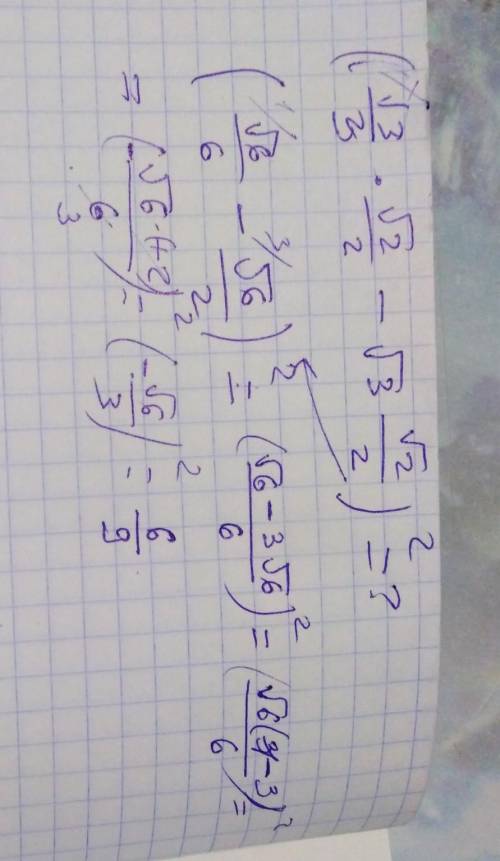 (√3/3 · √2/2 − √3 √2/2)² = ?
(√6/6 − ³⁄√6/2)² = (√6 − 3√6/6)² = (√6(1−3)/6)² =
= (√6·(−2)/6)² = (−√6/3)² = 6/9